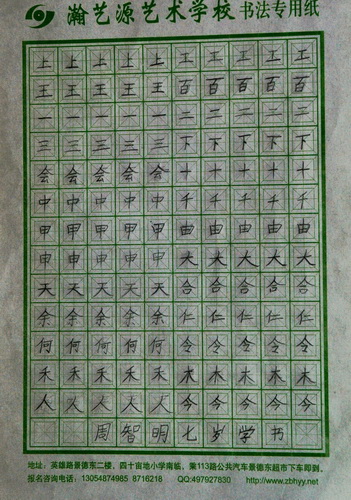 瀚艺源艺术学校 书法专用纸
上上上上上工工工工工
王王王王王百百百百百
一一一一一二二二二二
三三三三三下下下下下
会会会会会十十十十十
中中中中中千千千千千
甲甲甲甲甲由由由由由
申申申申申大大大大大
天天天天天合合合合合
余余余余余仁仁仁仁仁
何何何何何令令令令令
禾禾禾禾禾木木木木木
人人人人人今今今今今
周智明七岁学书
地址：英雄路景德东二楼，四十亩地小学南临，乘113路公共汽车景德东超市下车即到。
报名咨询电话：13054874985 8716218 QQ:497927830 http://www.zbhyy.net